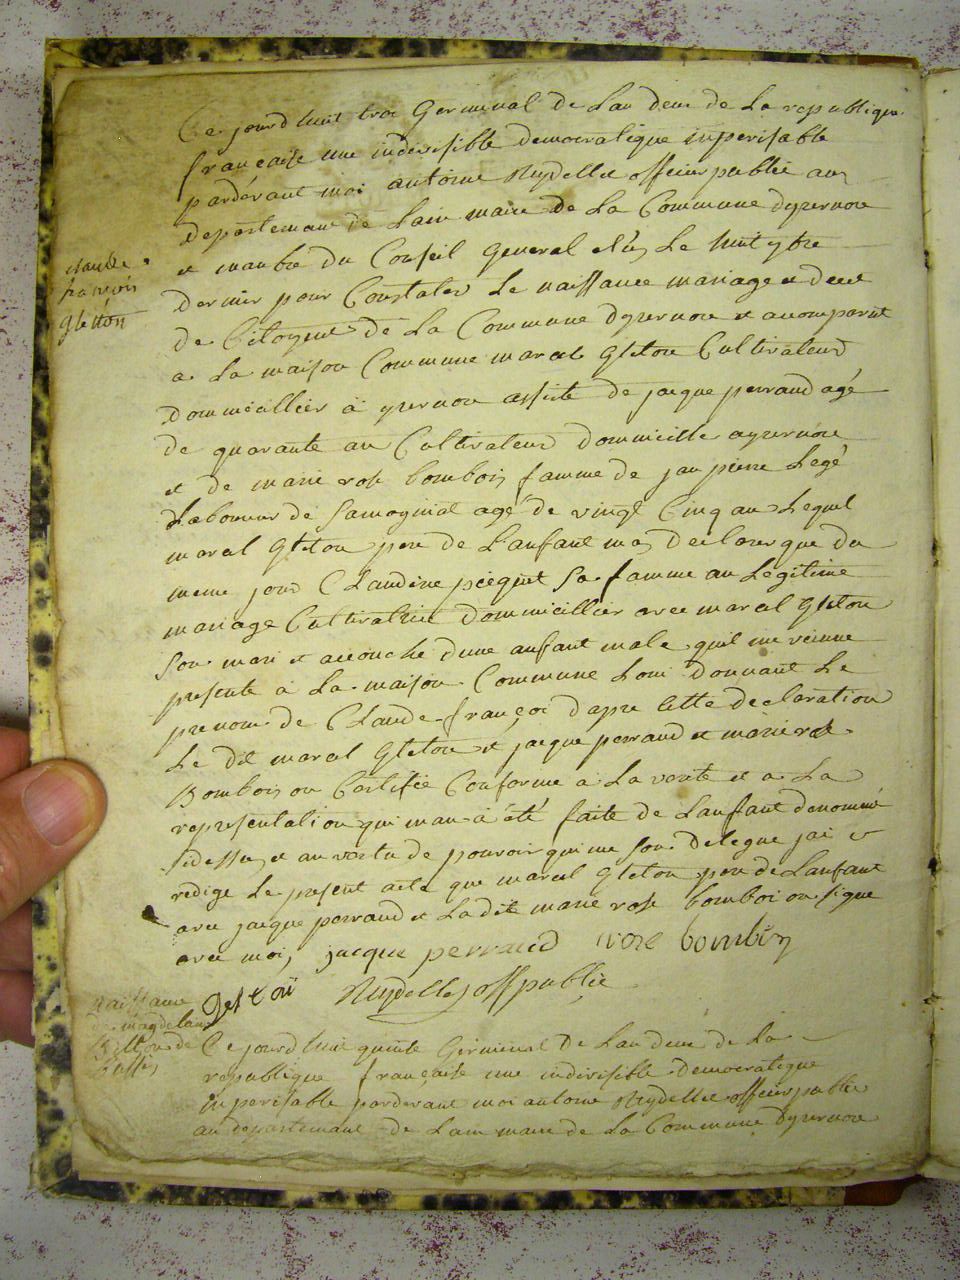 Ce jourd huit troi Germinal de Lan deux de La republique
française une indivisible democratique inperisable
pardevant moi antoine Ruydellet officier publice au
departemant de Lain maire de La Commune dyzernore
et manbre du Conseil General elu Le huit
dernier pour Constater Le naissance mariage et decet
de Citoyent de La Commune dyzernore et a comparut
claude
françois
gletton
a La maison Commune marcel Gleton Cultivateur
dommicillier a yzernore assiste de jacque perraud agé
de quarante an Cultivateur dommicille a yzernore
et de marie rose bombois famme de jan pierre Legé
Laboureur de Samognat agé de vingt Cinq an Lequel
marcel Gleton pere de Lanfant ma declarer que du
meme jour Claudine picquet Sa famme an Legitime
mariage Cultivatrice dommicillier avec marcel Gleton
Son mari et accouché dune anfant male quil me
presente a La maison Commune Loui donnant Le
prenom de Claude françoi dapre Cette declaration
Le dit marcel Gleton et jacque perraud et marie rose
Bombois on Certifée Conforme a La verité et a La
representation qui man a été faite de Lanfant denommé
sidessu et an vertu de pouvoir qui me son delegue jai
redige Le present acte que marcel Gleton pere de Lanfant
avec jacque perraud et La dite marie rose bomboi on signe
avec moi jacque perraud rose bombois
gleton Ruydellet off publice
Naissance
de magdelaine
Ce jourd huit quinte Germinal de Lan deux de La
republique française une indivisible democratique
inperisable pardevant moi antoine Ruydellet officier publice
au departemant de Lain maire de La Commune dyzernore